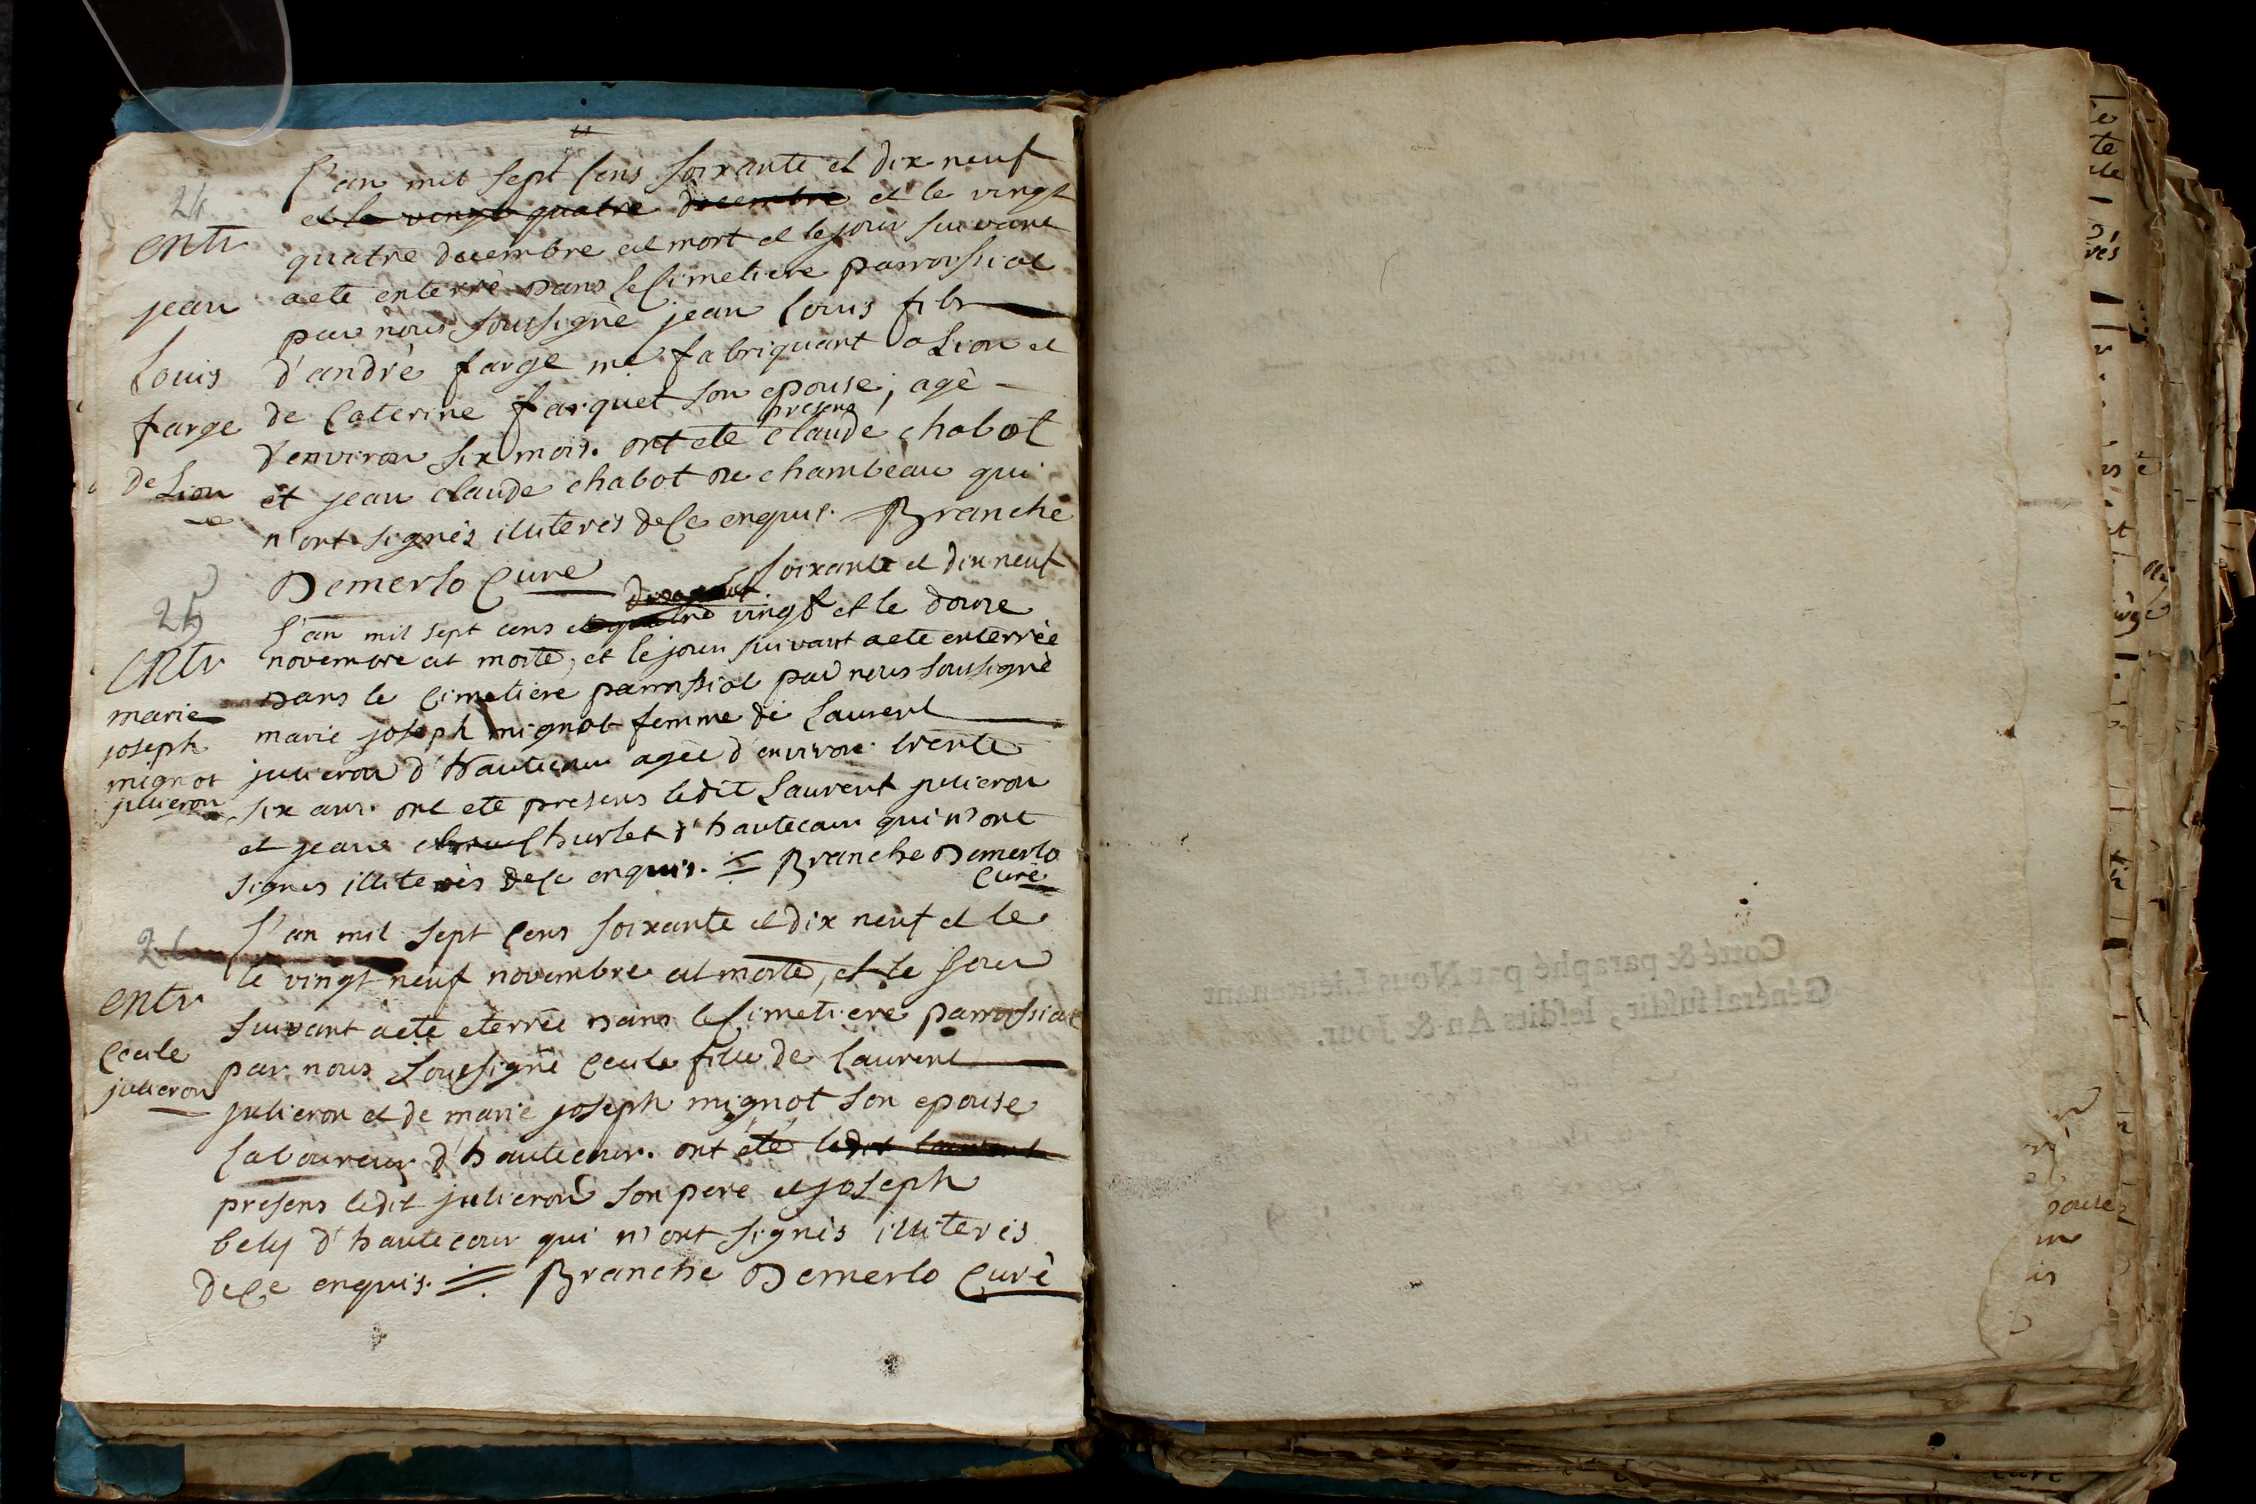 24
entr
jean
Louis
farge
de Lion
L'an mil sept cens soixante et dix neuf
et le vingt quatre decembre et le vingt
quatre decembre est mort et le jour suivant
a ete enterré dans le cimetiere parroissial
par nous soussigné jean Louis fils
d'andré farge me fabriquant a Lion et
de Caterine farquet son epouse, agé
d'environ six mois. ont ete presens claude chabot
et jean claude chabot de chambeau qui
n'ont signés illiterés de ce enquis. Branche
Demerlo Curé
25
entr
marie
joseph
mignot
julieron
L'an mil sept cens soixante et dix neuf
et quatre vingt et le douze
novembre est morte, et le jour suivant a ete enterrée
dans le cimetiere parroissial par nous soussigné
marie joseph mignot femme de Laurent
julieron d'hautecour agée d'environ trente
six ans. ont ete presens ledit Laurent julieron
et jean churlet d'hautecour qui n'ont
signés illiterés de ce enquis. Branche Demerlo
Curé
26
entr
Cecile
julieron
L'an mil sept cens soixante et dix neuf et le
le vingt neuf novembre est morte, et le jour
suivant a ete eterrée dans le cimetiere parroissial
par nous soussigné Cecile fille de Laurent
julieron et de marie joseph mignot son epouse
laboureur d'hautecour. ont été ledit Laurent
presens ledit julieron son pere et joseph
bely d'hautecour qui n'ont signés illiterés
de ce enquis. Branche Demerlo Curé
Cotté & paraphé par Nous Lieutenant
Général susdit, lesdits An & Jour.